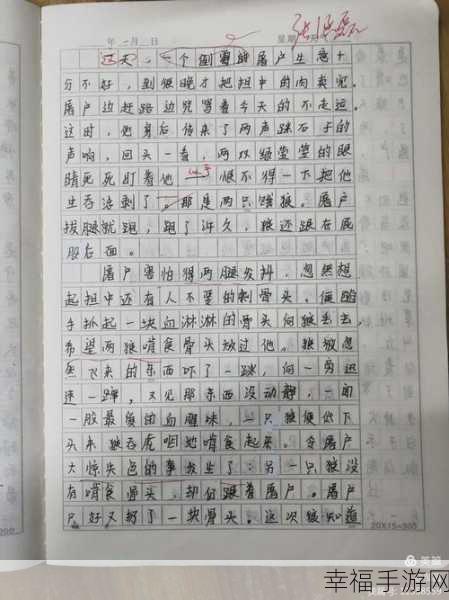 年 月 日 星期
这天，一个倒霉的屠户生意十
分不好，到很晚才把担中的肉卖完。
屠户边赶路边咒骂着今天的不走运。
这时，他身后传来了两声踩石子的
声响，回头一看，两双绿莹莹的眼
睛死死盯着他 恨不得一下把他
生吞活剥了。那是两只饿狼。屠户
拔腿就跑，跑了许久，狼还跟在屁
股后面。
屠户害怕得两腿发抖，忽然想
起担中还有人不要的剩骨头，便随
手抓起一块血淋淋的骨头向狼丢去，
希望两狼啃食骨头放过他。狼被忽
然飞来的东西吓了一跳，向一旁迅
速一蹿，又见那东西没动静，一闻
一股最爱的血腥味，一只狼便低下
头来狼吞虎咽地啃食起来。令屠户
大惊失色的事发生了：另一只狼没
有啃食骨头，却仍跟着屠户。屠户
只好又扔了一块骨头。这次狼知道
20X15=300
美篇
幸福手游网